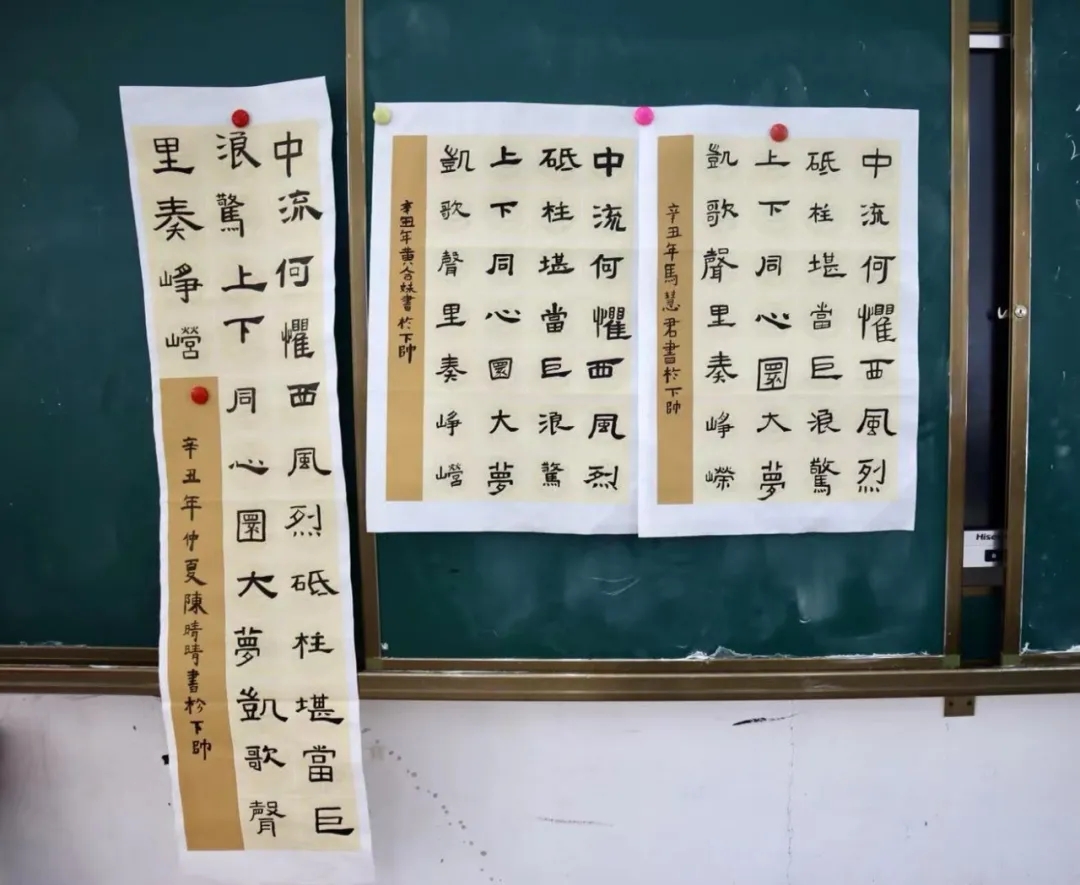 中流何懼西風烈砥柱堪當巨
浪驚上下同心圜大夢凱歌聲
里奏崢巆
辛丑年仲夏陳晴晴書於下帥
中流何懼西風烈
砥柱堪當巨浪驚
上下同心圜大夢
凱歌聲里奏崢巆
辛丑年黃妹書於下帥
中流何懼西風烈
砥柱堪當巨浪驚
上下同心圜大夢
凱歌聲里奏崢嶸
辛丑年馬慧君書於下帥
Hise